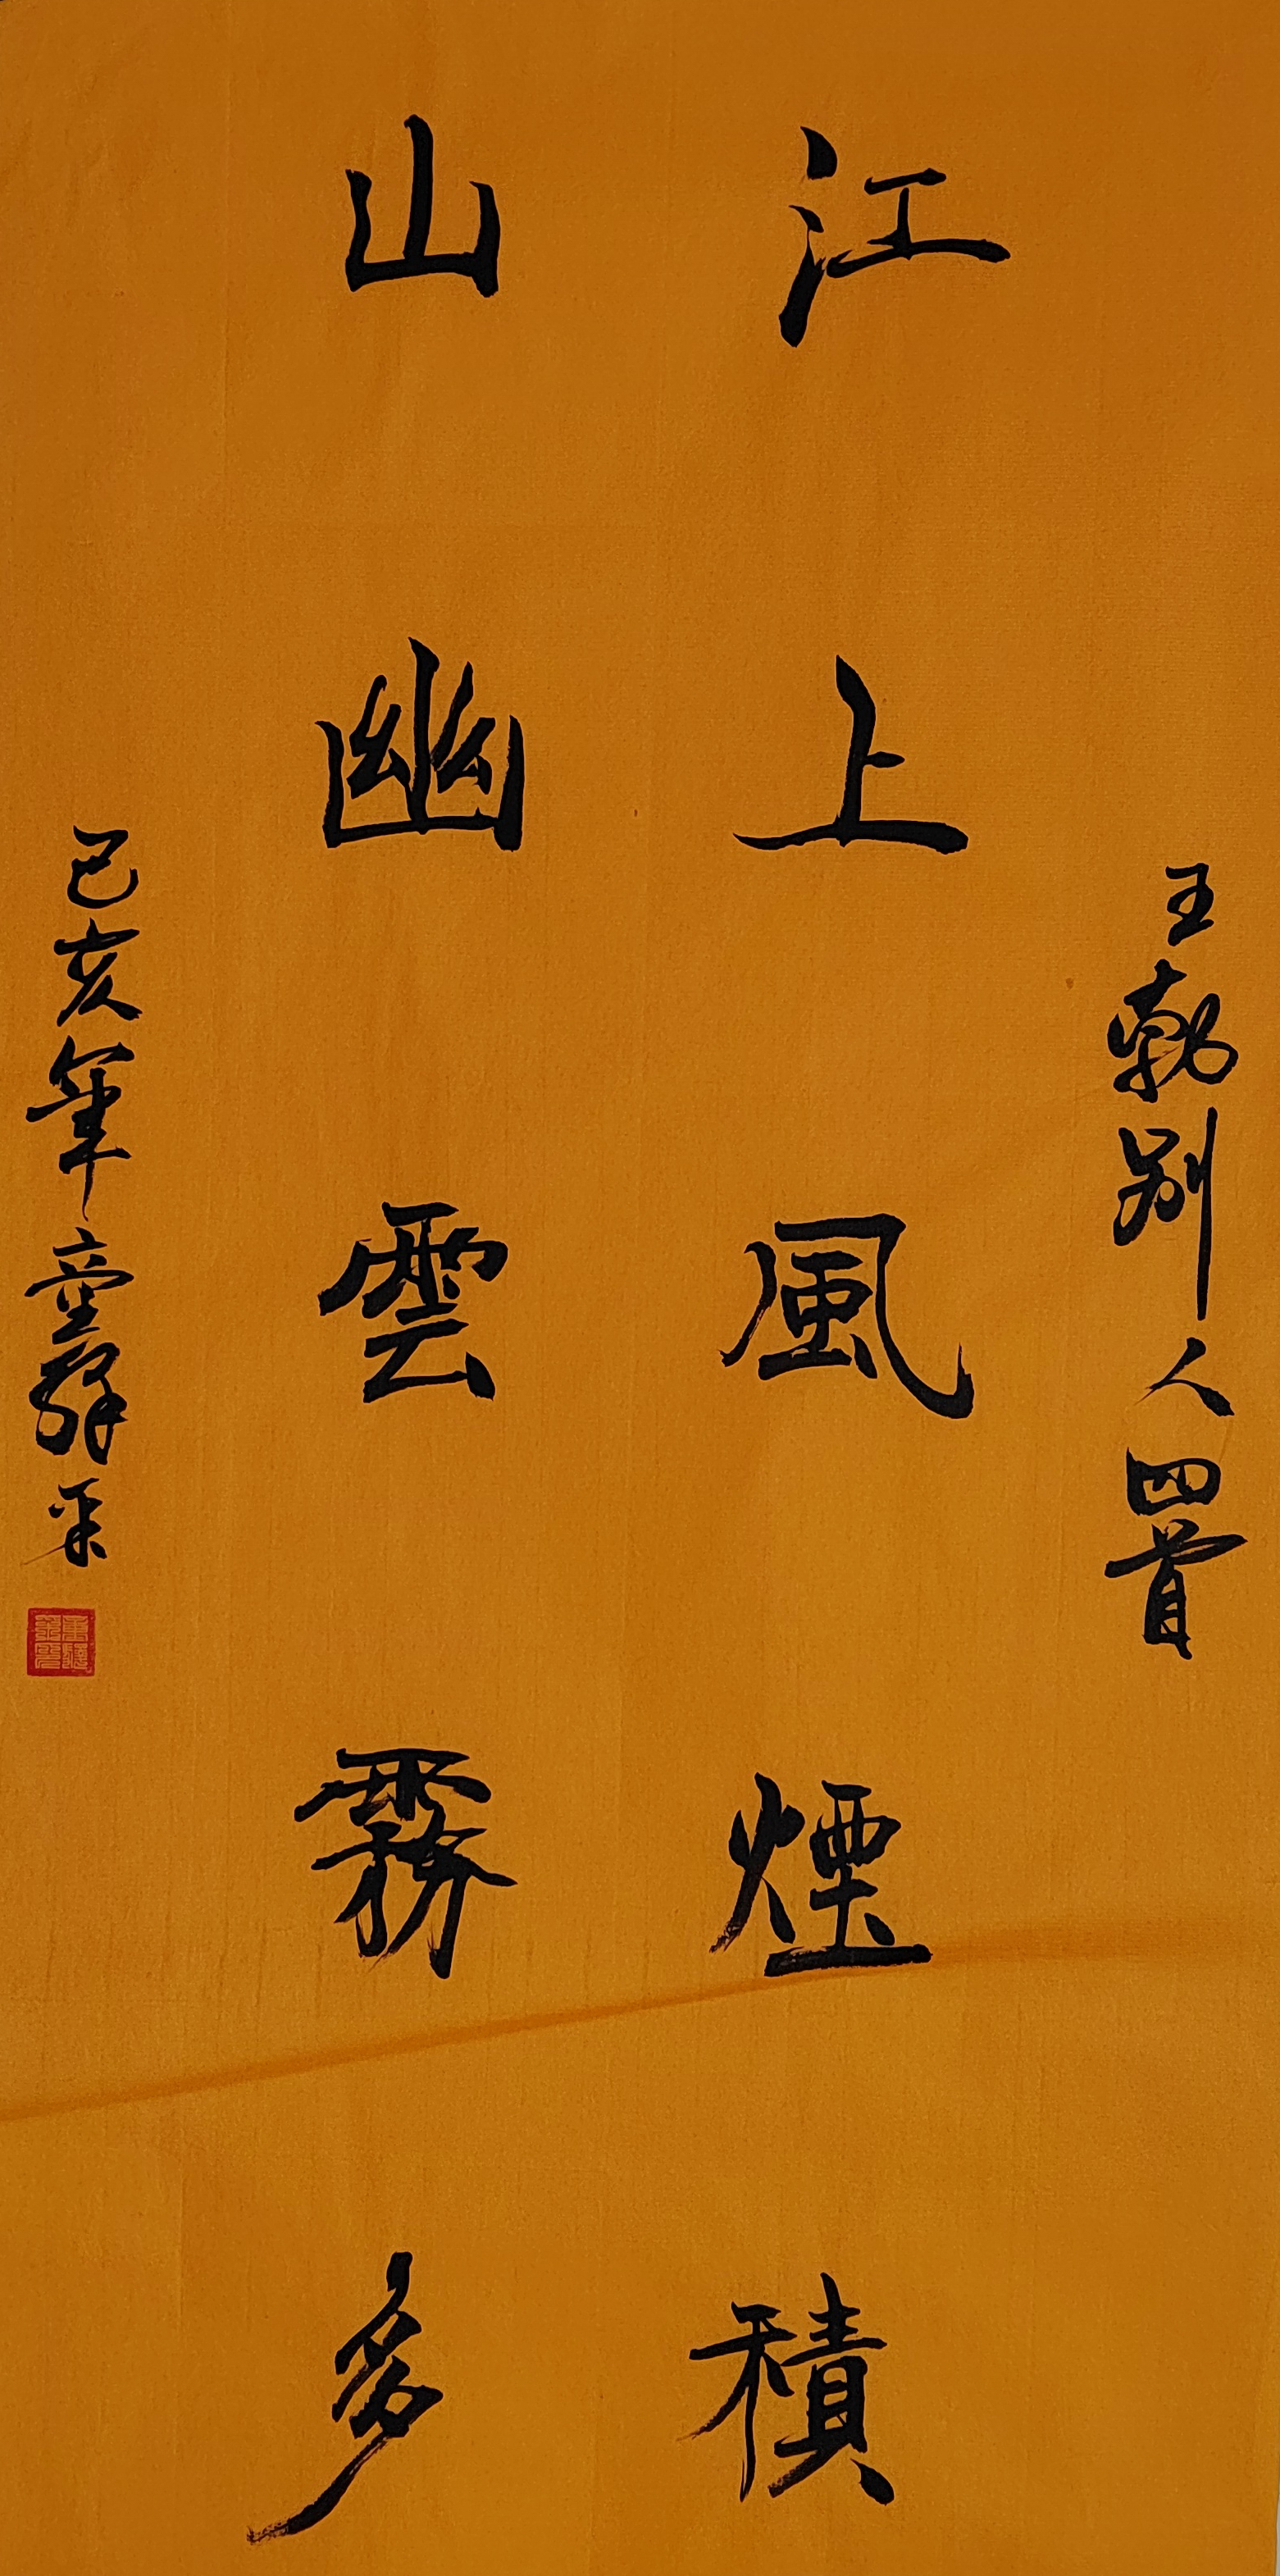 王勃别人四首
江上風煙積
山幽雲霧多
己亥年童